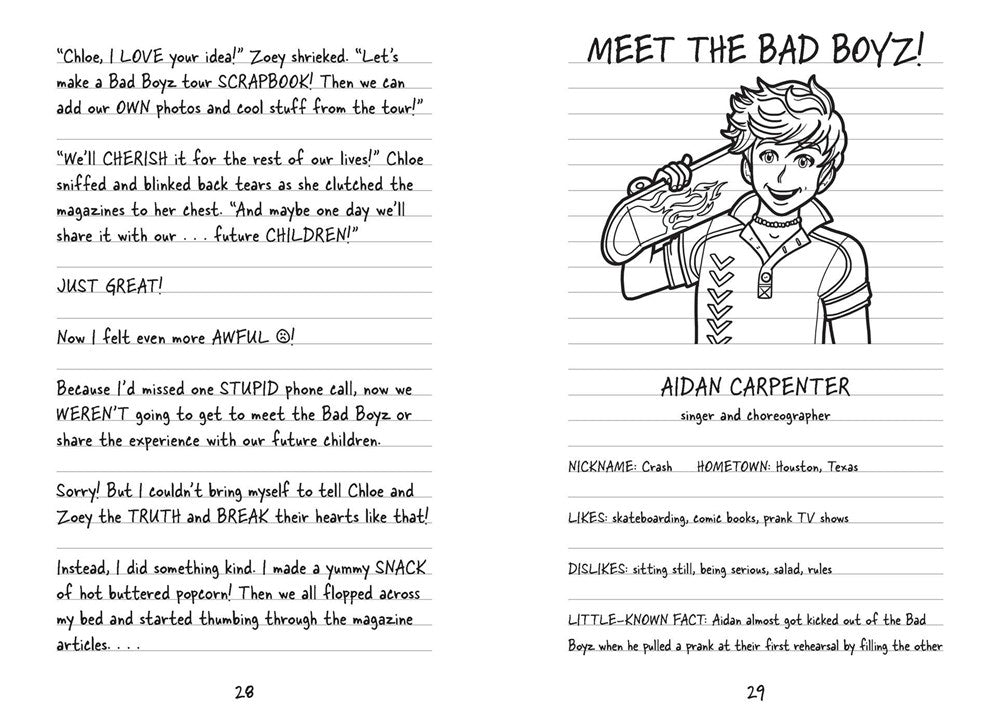 “Chloe, I LOVE your idea!” Zoey shrieked. “Let’s
make a Bad Boyz tour SCRAPBOOK! Then we can
add our OWN photos and cool stuff from the tour!”
“We’ll CHERISH it for the rest of our lives!” Chloe
sniffed and blinked back tears as she clutched the
magazines to her chest. “And maybe one day we’ll
share it with our . . . future CHILDREN!”
JUST GREAT!
Now I felt even more AWFUL ☹!
Because I’d missed one STUPID phone call, now we
WEREN’T going to get to meet the Bad Boyz or
share the experience with our future children.
Sorry! But I couldn’t bring myself to tell Chloe and
Zoey the TRUTH and BREAK their hearts like that!
Instead, I did something kind. I made a yummy SNACK
of hot buttered popcorn! Then we all flopped across
my bed and started thumbing through the magazine
articles. . . .
28
MEET THE BAD BOYZ!
AIDAN CARPENTER
singer and choreographer
NICKNAME: Crash HOMETOWN: Houston, Texas
LIKES: skateboarding, comic books, prank TV shows
DISLIKES: sitting still, being serious, salad, rules
LITTLE-KNOWN FACT: Aidan almost got kicked out of the Bad
Boyz when he pulled a prank at their first rehearsal by filling the other
29